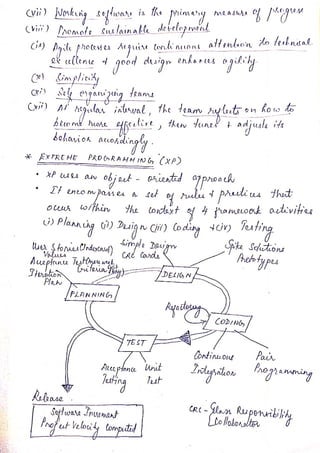 (vii) Working software is the primary measure of progress
(viii) Promote sustainable development
(ix) Agile processes require continuous attention to technical
excellence & good design enhances agility.
(x) Simplicity
(xi) Self organizing teams
(xii) At regular interval, the team reflects on how to
become more effective, then tunes & adjusts its
behavior accordingly.
* EXTREME PROGRAMMING (XP)
• XP uses an object-oriented approach
• It encompasses a set of rules & practices that
occur within the context of 4 framework activities
(i) Planning (ii) Design (iii) Coding & (iv) Testing
User Stories
Values
Acceptance Test
Iteration
Plan
Simple Design
CRC Cards
Spike Solutions
Prototypes
DESIGN
PLANNING
Refactoring
CODING
TEST
Acceptance
Testing
Unit
Test
Continuous
Integration
Pair
Programming
Release
Software Increment
Project Velocity computed
CRC - Class Responsibility
Collaborator